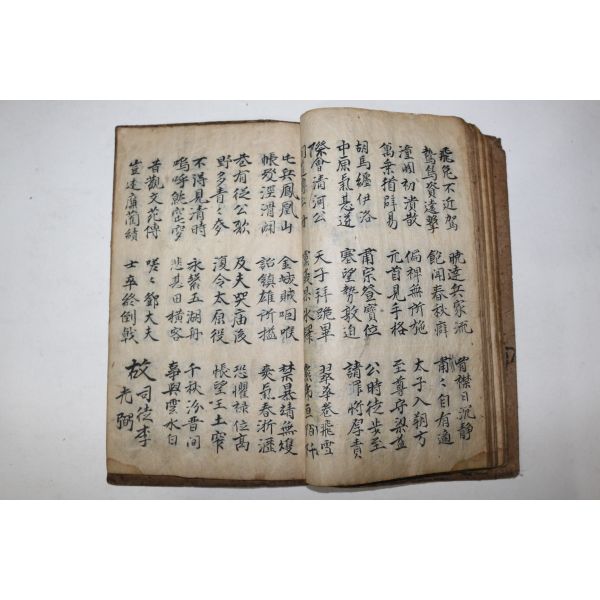 飛兎不近駕 曉達兵家流 胷襟日沉靜
鷙鳥資遠擊 飽聞春秋癖 肅々自有適
潼關初潰散 偏裨無所施 太子入朔方
萬乘猶辟易 元首見手格 至尊守梁益
胡馬纏伊洛 肅宗登寶位 公時徒步至
中原氣甚逆 塞望勢敦迫 請罪將厚責
際會清河公 天子拜跪畢 翠華卷飛雪
屯兵鳳凰山 金城賊咽喉 禁暴靖無雙
帳殿涇渭闢 詔鎮雄所搤 爽氣春淅瀝
巷有從公歌 及夫哭庙後 恐懼祿位高
野多青々麥 復令太原役 悵望王土窄
不得見清時 永繫五湖舟 千秋汾晉間
嗚呼就窀穸 悲甚田橫客 事與雲水白
昔觀文苑傳 嗟々鄧大夫 故司徒李
豈述廉藺績 士卒終倒戟 光弼